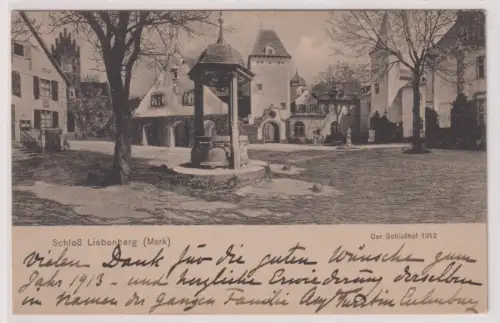 Schloß Liebenberg (Mark)
Der Schloßhof 1912
Vielen Dank für die guten Wünsche zum
Jahr 1913 - und herzliche Erwiederung derselben
im Namen der ganzen Familie Aug Fürstin Eulenburg